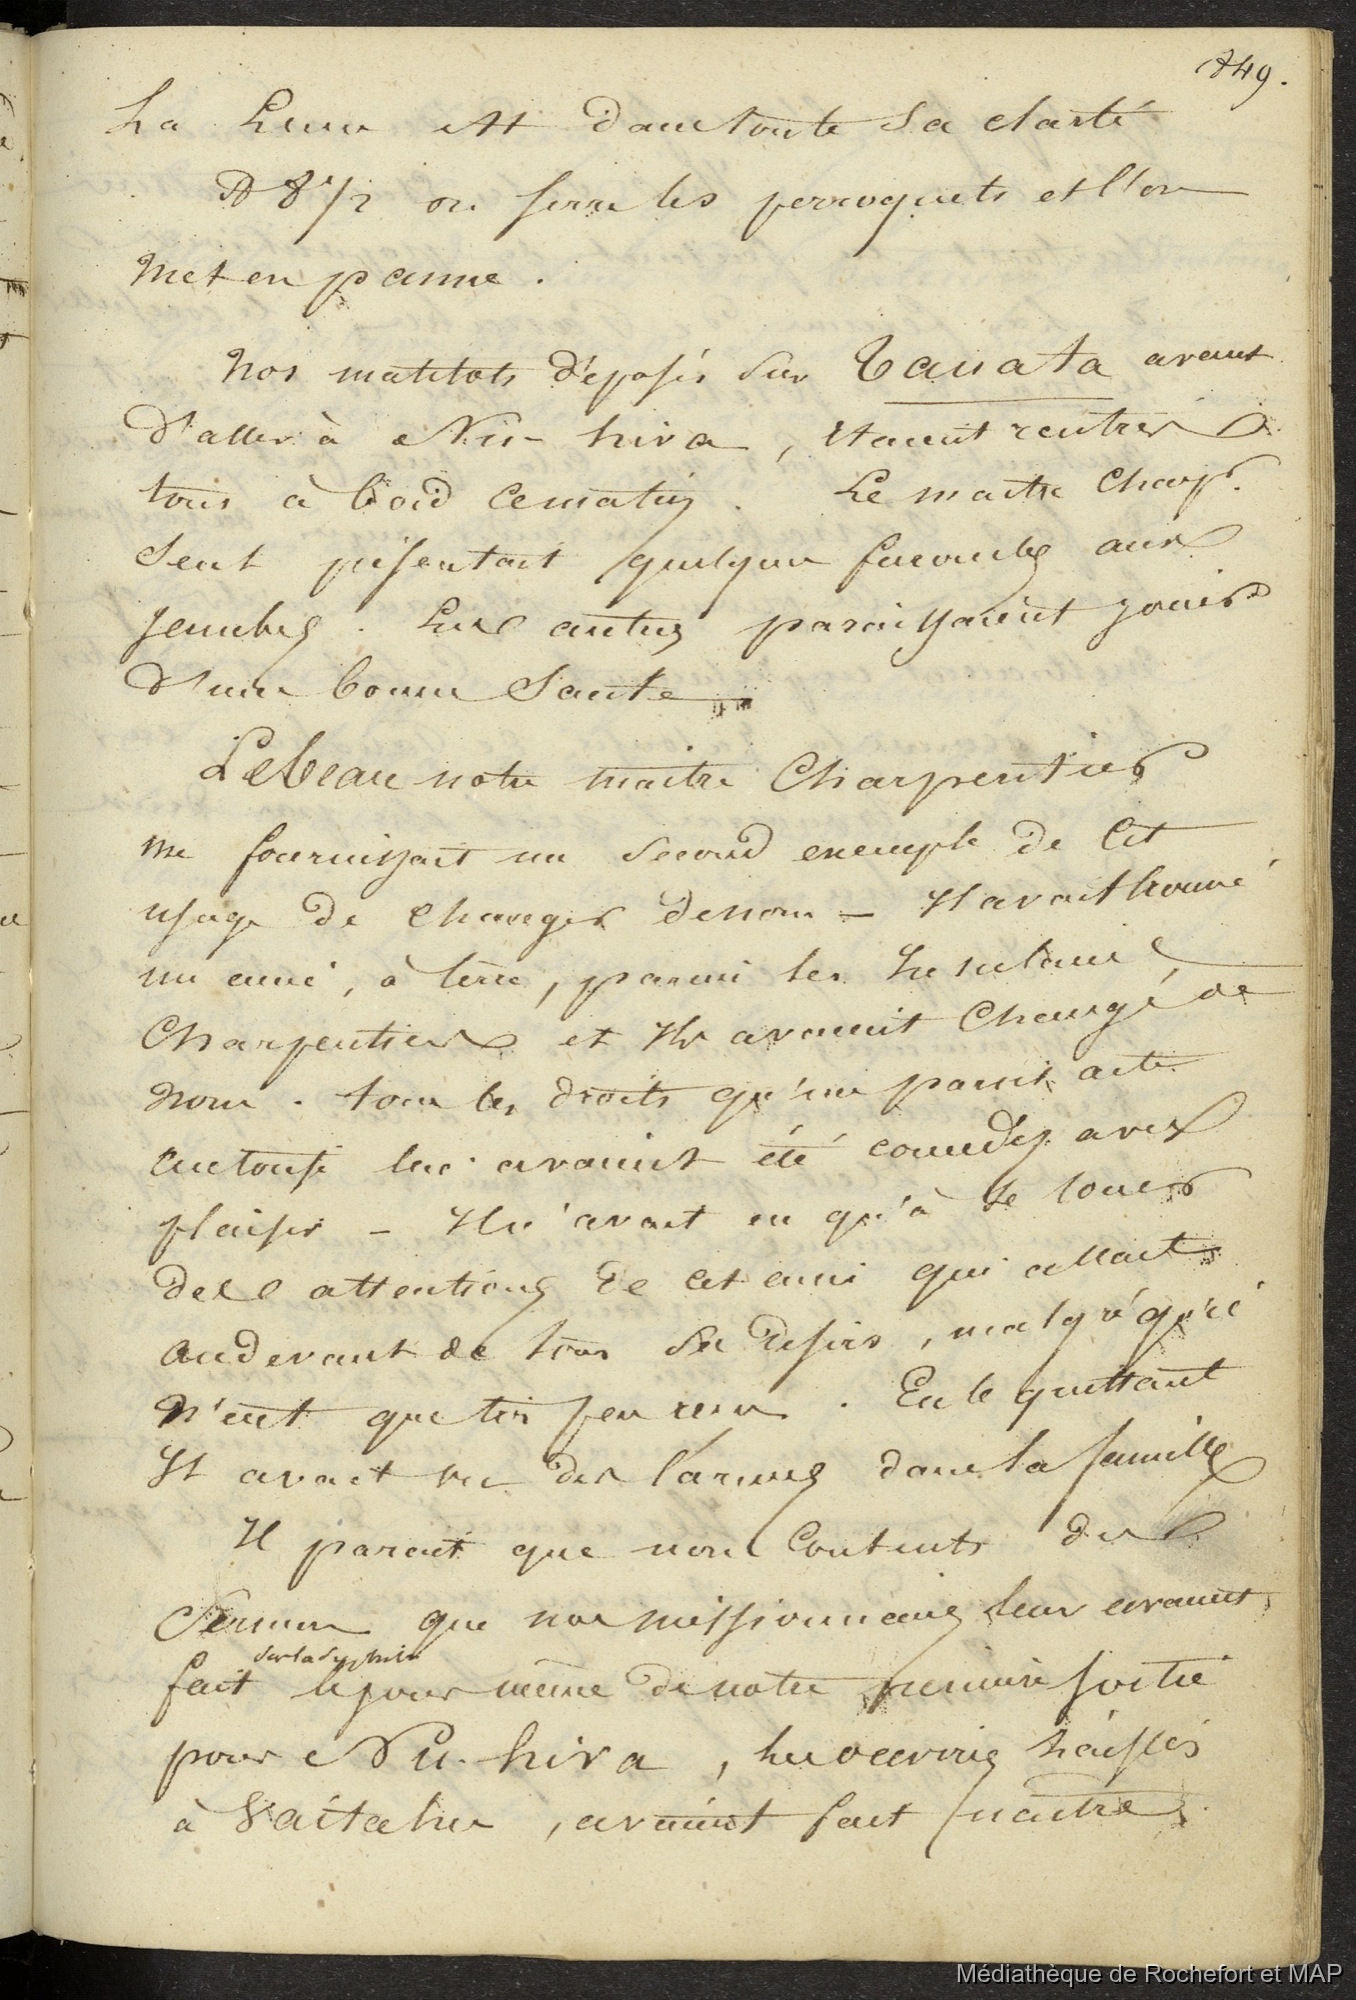 849.
La Lune est dans toute sa clarté
A 8 1/2 on serre les perroquets et l'on
met en panne.
Nos matelots déposés sur Tauata avant
d'aller à Nu-hiva, étaient rentrés
tous à bord ce matin. Le maître charp.
seul présentait quelques furoncles aux
jambes. Les autres paraissaient jouir
d'une bonne santé
Lebeau notre maître Charpentier
me fournissait un second exemple de cet
usage de changer de nom — Il avait trouvé
un ami, à terre, parmi les Insulaires,
Charpentier et ils avaient changé de
nom. tous les droits qu'un pareil acte
autorise lui avaient été concédés avec
plaisir — Il n'avait eu qu'à se louer
des attentions de cet ami qui allait
au devant de tous ses désirs, malgré qu'il
n'eut que très peu reçu. En le quittant
Il avait vu des larmes dans la famille
Il parait que non contents du
Sermon que nos missionnaires leur avaient
sur la syphilis
fait le jour même de notre première sortie
pour Nu-hiva, les ouvriers laissés
à Vaitahu, avaient fait naître
Médiathèque de Rochefort et MAP